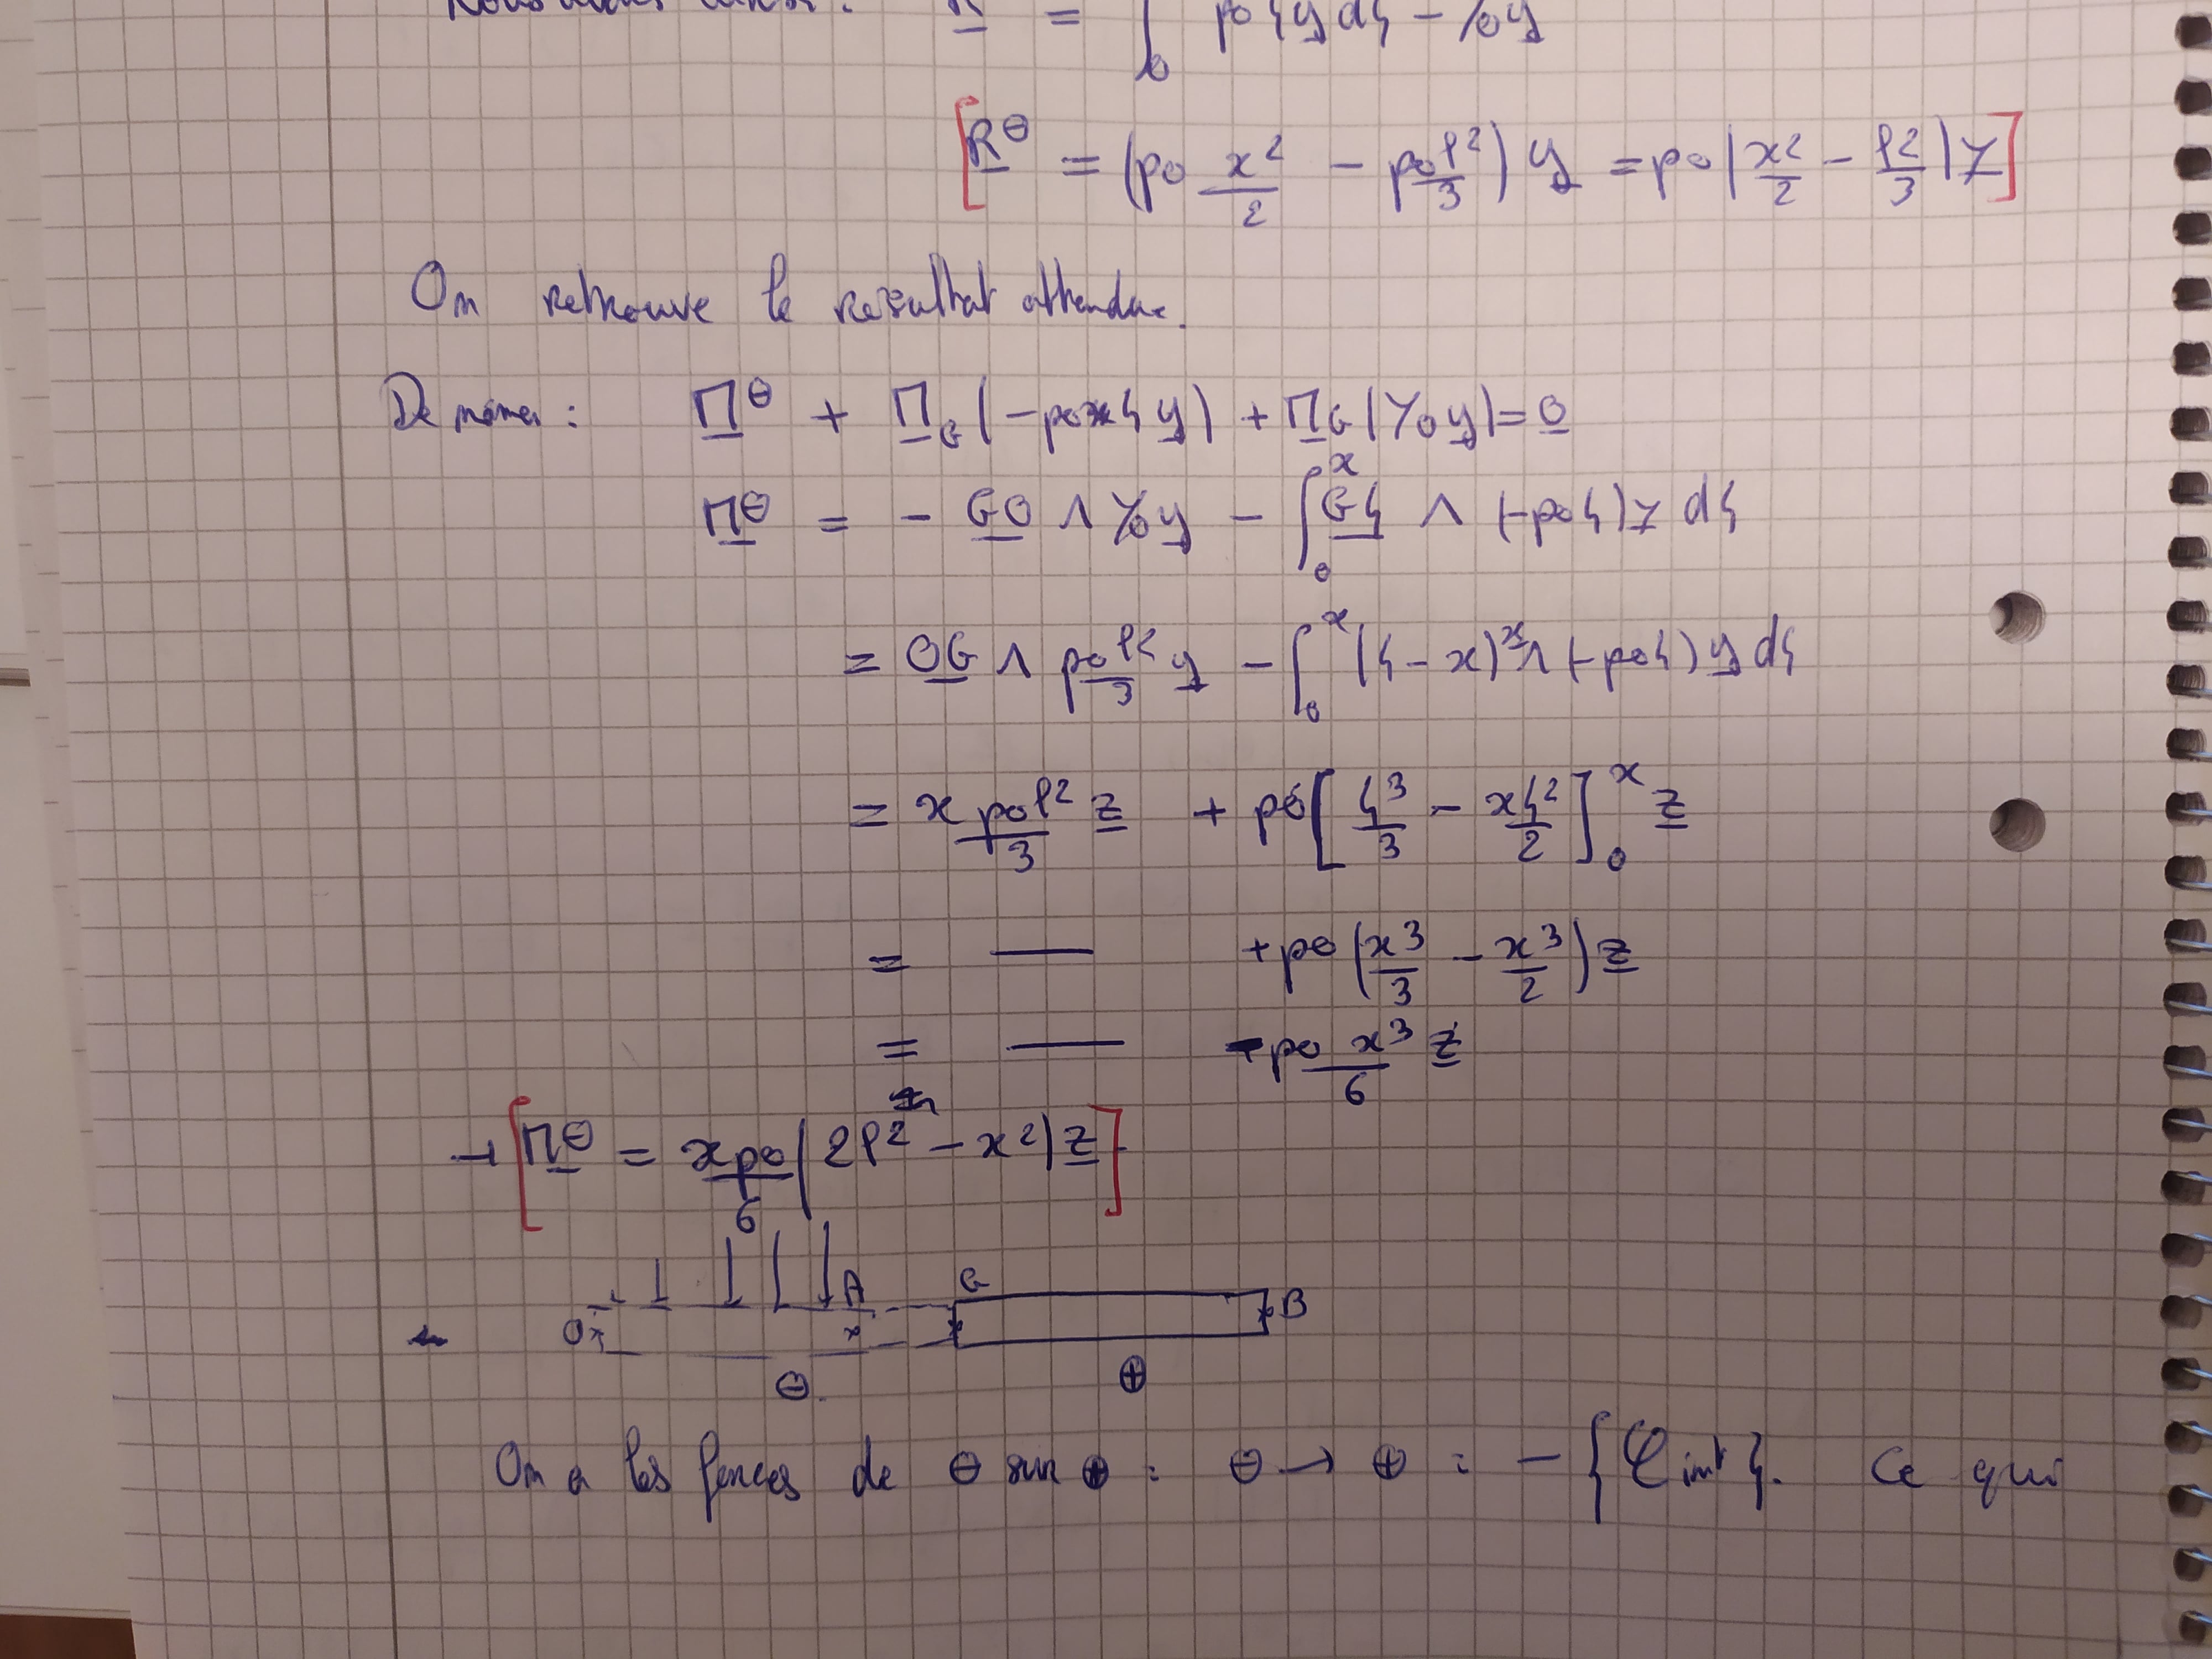 = ∫₀ p₀ ζ y dζ - Y₀ y
[R^⊖ = (p₀ x²/2 - p₀ l²/3) y = p₀ (x²/2 - l²/3) y]
On retrouve le résultat attendu.
De même : M^⊖ + M_G (-p₀ ζ y) + M_G (Y₀ y) = 0
M^⊖ = - GO ∧ Y₀ y - ∫₀^x Gζ ∧ (-p₀ ζ) y dζ
= OG ∧ p₀ l²/3 y - ∫₀^x (ζ - x) x ∧ (-p₀ ζ) y dζ
= x p₀ l²/3 z + p₀ [ζ³/3 - xζ²/2]₀^x z
= — + p₀ (x³/3 - x³/2) z
= — - p₀ x³/6 z
→ [M^⊖ = x p₀/6 (2l² - x²) z]
A G B
O x
⊖ ⊕
On a les forces de ⊖ sur ⊕ : ⊖ → ⊕ : - {τ int}. Ce qui